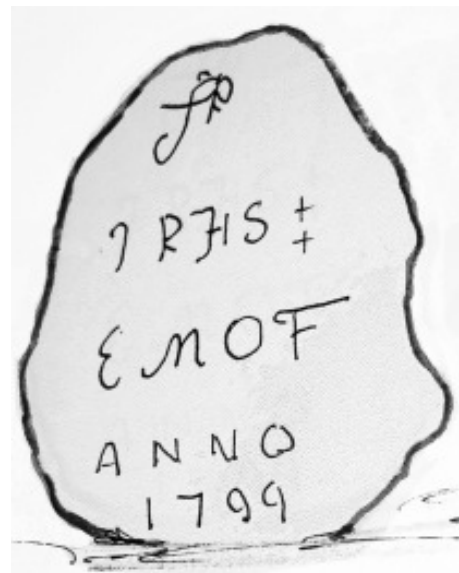 I R H S ‡
E M O F
A N N O
1799